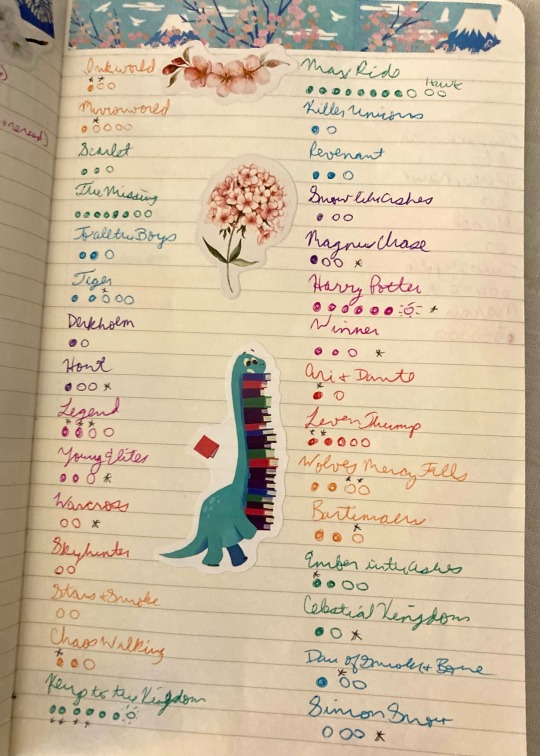 Inkworld
Mirrorworld
Scarlet
The Missing
To all the Boys
Tiger
Derkholm
Hunt
Legend
Young Elites
Warcross
Skyhunter
Stars + Smoke
Chaos Walking
Keys to the Kingdom
Max Ride
Hawk
Killer Unicorns
Revenant
Snow like Ashes
Magnus Chase
Harry Potter
Winner
Ari + Dante
Leven Thump
Wolves Mercy Falls
Bartimaeus
Ember in the Ashes
Celestial Kingdom
Dau of Smoke + Bone
Simon Snow
reread)